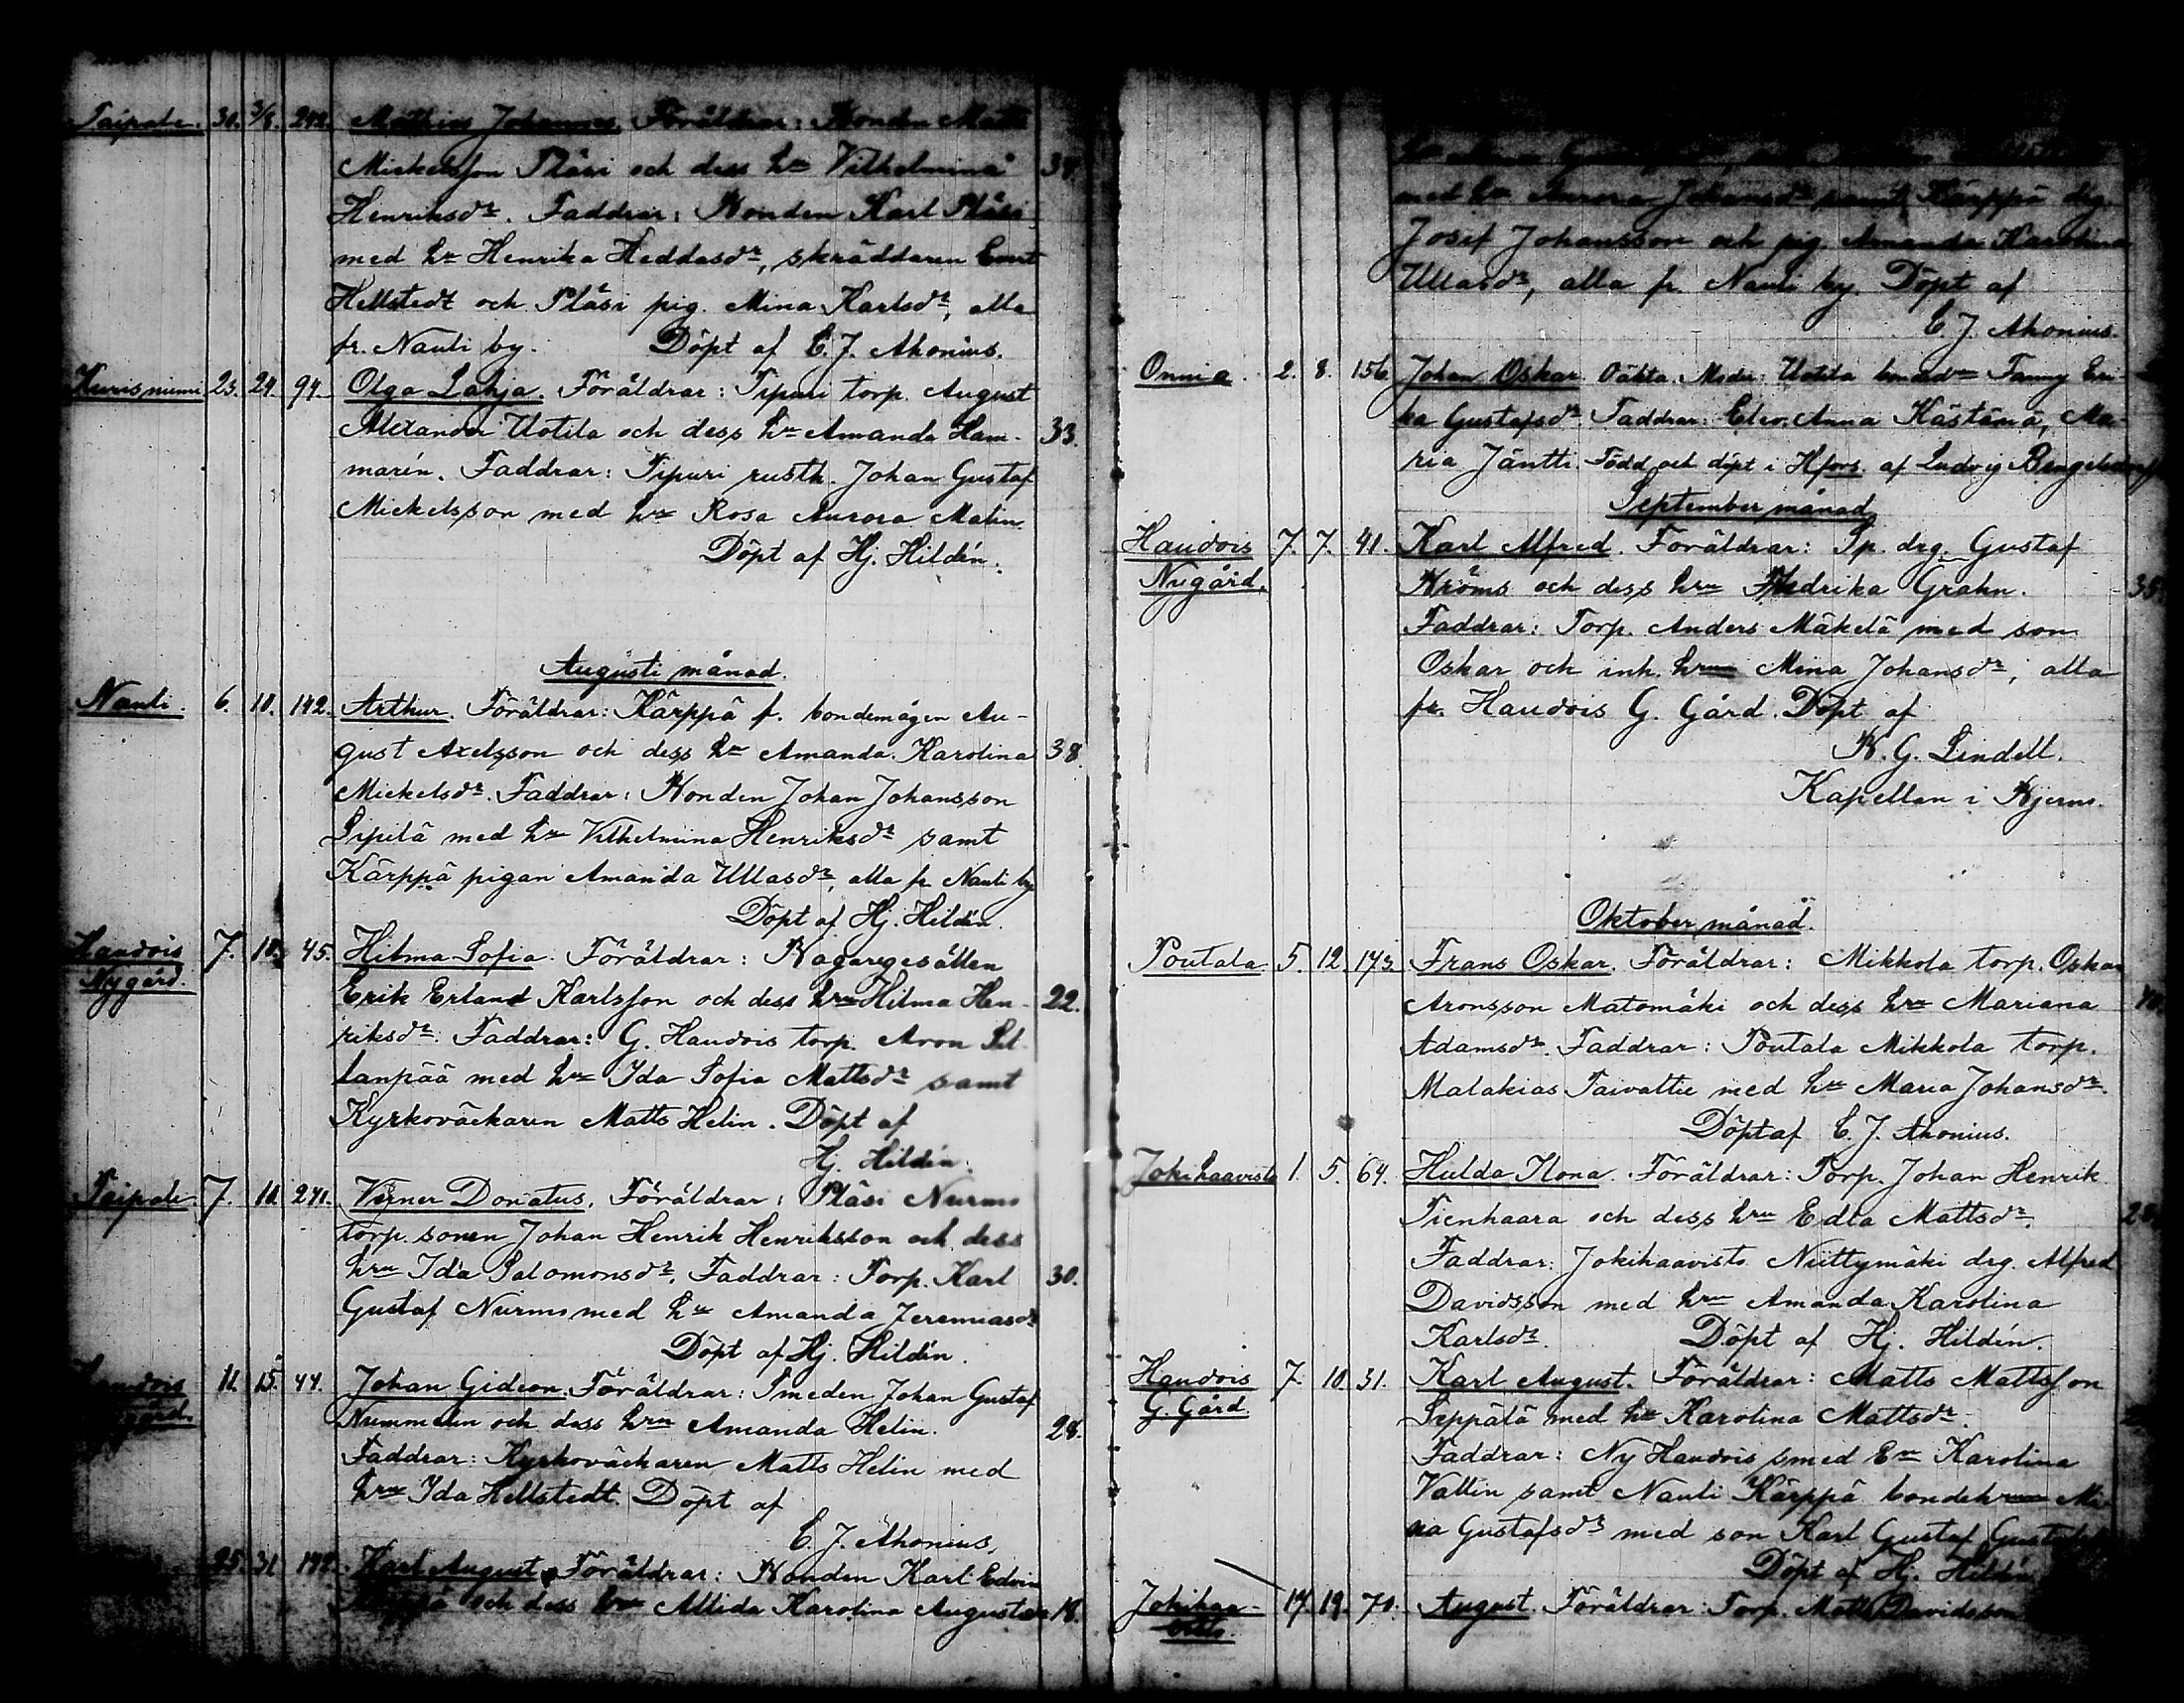 Taipale. 30. 3/8. 242. Mathias Johannes. Föräldrar: Bonden Matts
Mickelsson Pläsi och dess hu Vilhelmina 34.
Henriksdr. Faddrar: Bonden Karl Pläsi
med hu Henrika Heddasdr, skräddaren Ernt
Hellstedt och Pläsi pig. Mina Karlsdr, alla
fr. Nauli by. Döpt af E. J. Ahonius.
Kurisniemi 23. 24. 94. Olga Lahja. Föräldrar: Tipuri torp. August
Alexander Uotila och dess hu Amanda Ham- 33.
marén. Faddrar: Tipuri rusth. Johan Gustaf
Mickelsson med hu Rosa Aurora Malin.
Döpt af Hj. Hildén.
Augusti månad.
Nauli. 6. 10. 142. Arthur. Föräldrar: Kärppä f. bondemågen Au-
gust Axelsson och dess hu Amanda Karolina 38.
Mickelsdr. Faddrar: Bonden Johan Johansson
Sipilä med hu Vilhelmina Henriksdr samt
Kärppä pigan Amanda Ullasdr, alla fr. Nauli by
Döpt af Hj. Hildén.
Haudois 7. 10. 45. Hilma Sofia. Föräldrar: Bagaregesällen
Nygård. Erik Erland Karlsson och dess hru Hilma Hen- 22.
riksdr. Faddrar: G. Haudois torp. Aron Sil
lanpää med hu Ida Sofia Mattsdr samt
Kyrkoväckaren Matts Helin. Döpt af
Hj. Hildén.
Taipale. 7. 10. 241. Verner Donatus. Föräldrar: Pläsi Nurmo
torp. sonen Johan Henrik Henriksson och dess
hru Ida Salomonsdr. Faddrar: Torp. Karl 30.
Gustaf Nurmo med hu Amanda Jeremiasdr
Döpt af Hj. Hildén.
Haudois 11. 15. 44. Johan Gideon. Föräldrar: Smeden Johan Gustaf
gård. Nummelin och dess hru Amanda Helin. 28.
Faddrar: Kyrkoväckaren Matts Helin med
hru Ida Hellstedt. Döpt af
E. J. Ahonius.
25. 31. 142. Karl August. Föräldrar: Bonden Karl Edvin
och dess hru Allida Karolina Augustsdr 18.
med hu Aurora Johansdr samt Kärppä drg.
Josef Johansson och pig. Amanda Karolina
Ullasdr, alla fr. Nauli by. Döpt af
E. J. Ahonius.
Onnia. 2. 8. 156 Johan Oskar Oäkta. Moder: Uotila bondedr Fanny Eri
ka Gustafsdr Faddrar: Elev. Anna Kästämä, Ma-
ria Jäntti. Född och döpt i Hfors. af Ludvig
September månad
Haudois 7. 7. 41. Karl Alfred. Föräldrar: Sp. drg. Gustaf
Nygård. Kröms och dess hru Fredrika Grahn. 35.
Faddrar: Torp. Anders Mäkelä med son
Oskar och inh. hru Mina Johansdr, alla
fr. Haudois G. Gård. Döpt af
K. G. Lindell.
Kapellan i Kjerns.
Oktober månad.
Poutala 5. 12. 173. Frans Oskar. Föräldrar: Mikkola torp. Oskar
Aronsson Matomäki och dess hru Mariana 40.
Adamsdr. Faddrar: Poutala Mikkola torp.
Malakias Taivattie med hu Maria Johansdr.
Döpt af E. J. Ahonius.
Jokihaavisto 1. 5. 64. Hulda Ilona. Föräldrar: Torp. Johan Henrik
Tienhaara och dess hru Edla Mattsdr.
Faddrar: Jokihaavisto Niittymäki drg. Alfred
Davidsson med hru Amanda Karolina
Karlsdr. Döpt af Hj. Hildén.
Haudois 7. 10. 31. Karl August. Föräldrar: Matts Mattsson
G. Gård Seppälä med hu Karolina Mattsdr.
Faddrar: Ny Haudois smed Eu Karolina
Vallin samt Nauli Kärppä bondehru Mi-
na Gustafsdr med son Karl Gustaf
Döpt af Hj. Hildén
Jokihaa- 17. 19. 70. August. Föräldrar: Torp. Matts Davidsson
visto.